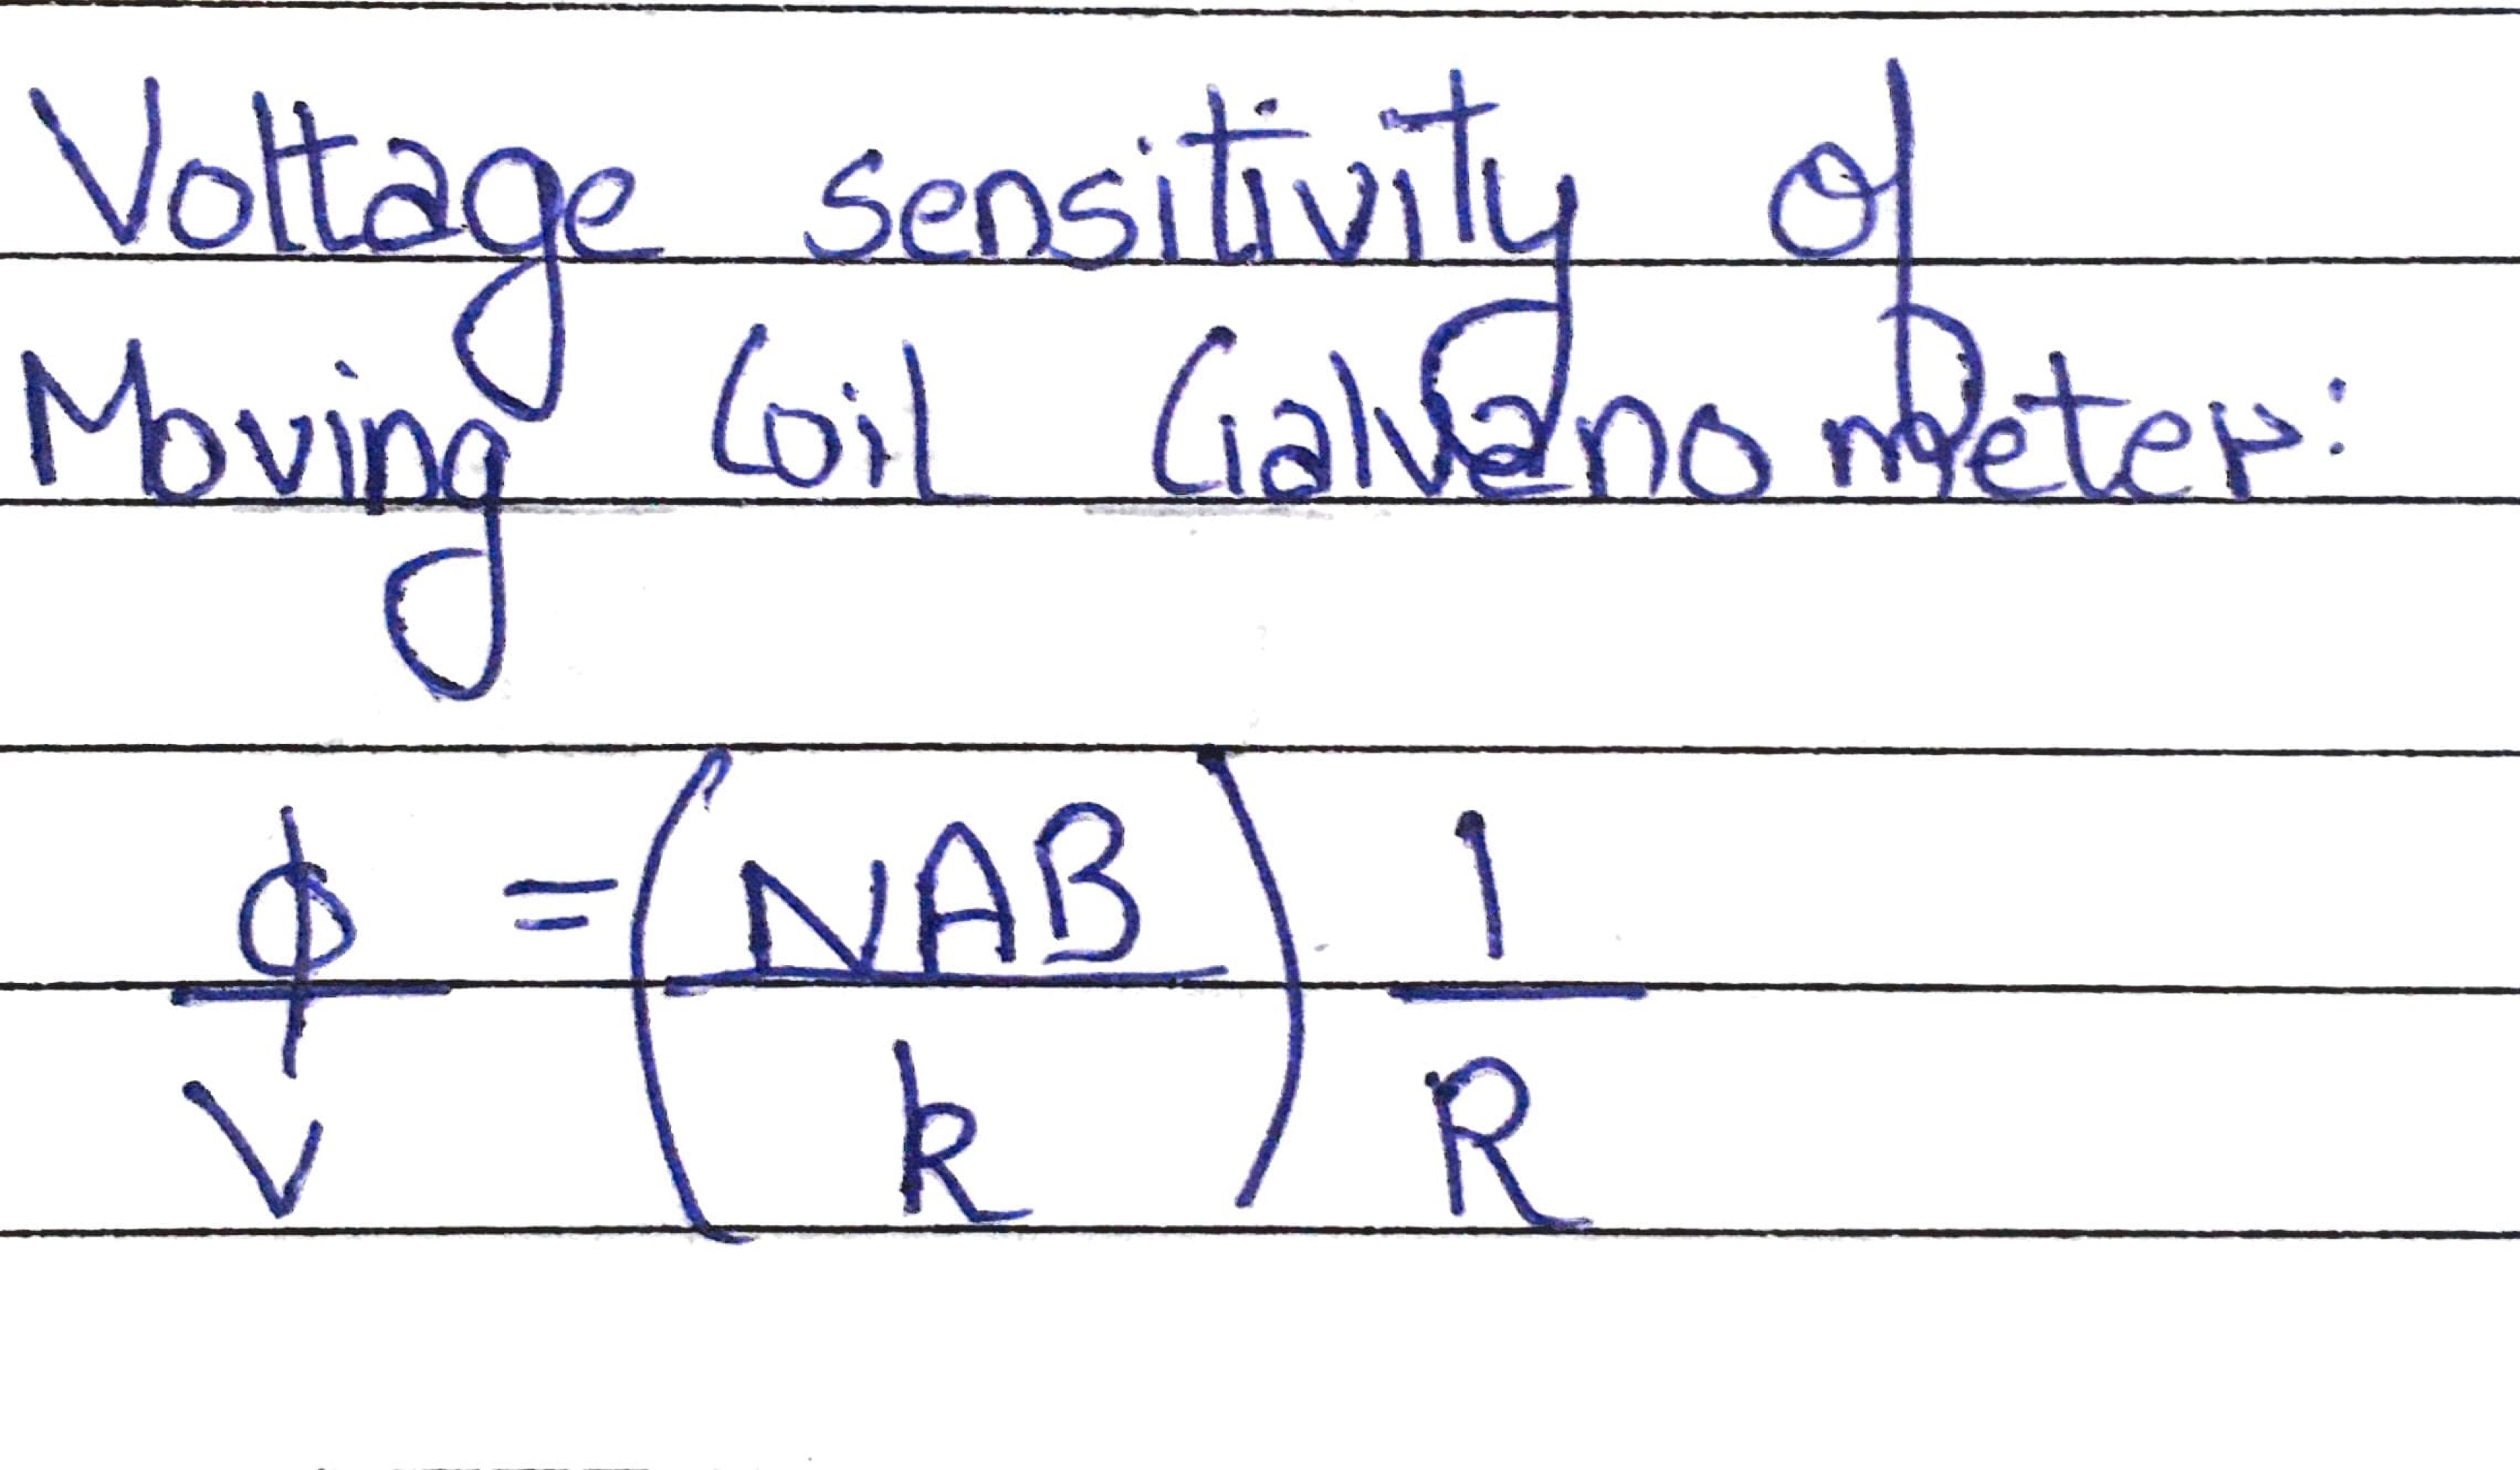 Voltage sensitivity of
Moving Coil Galvanometer:
ϕ/V = (NAB/k) 1/R